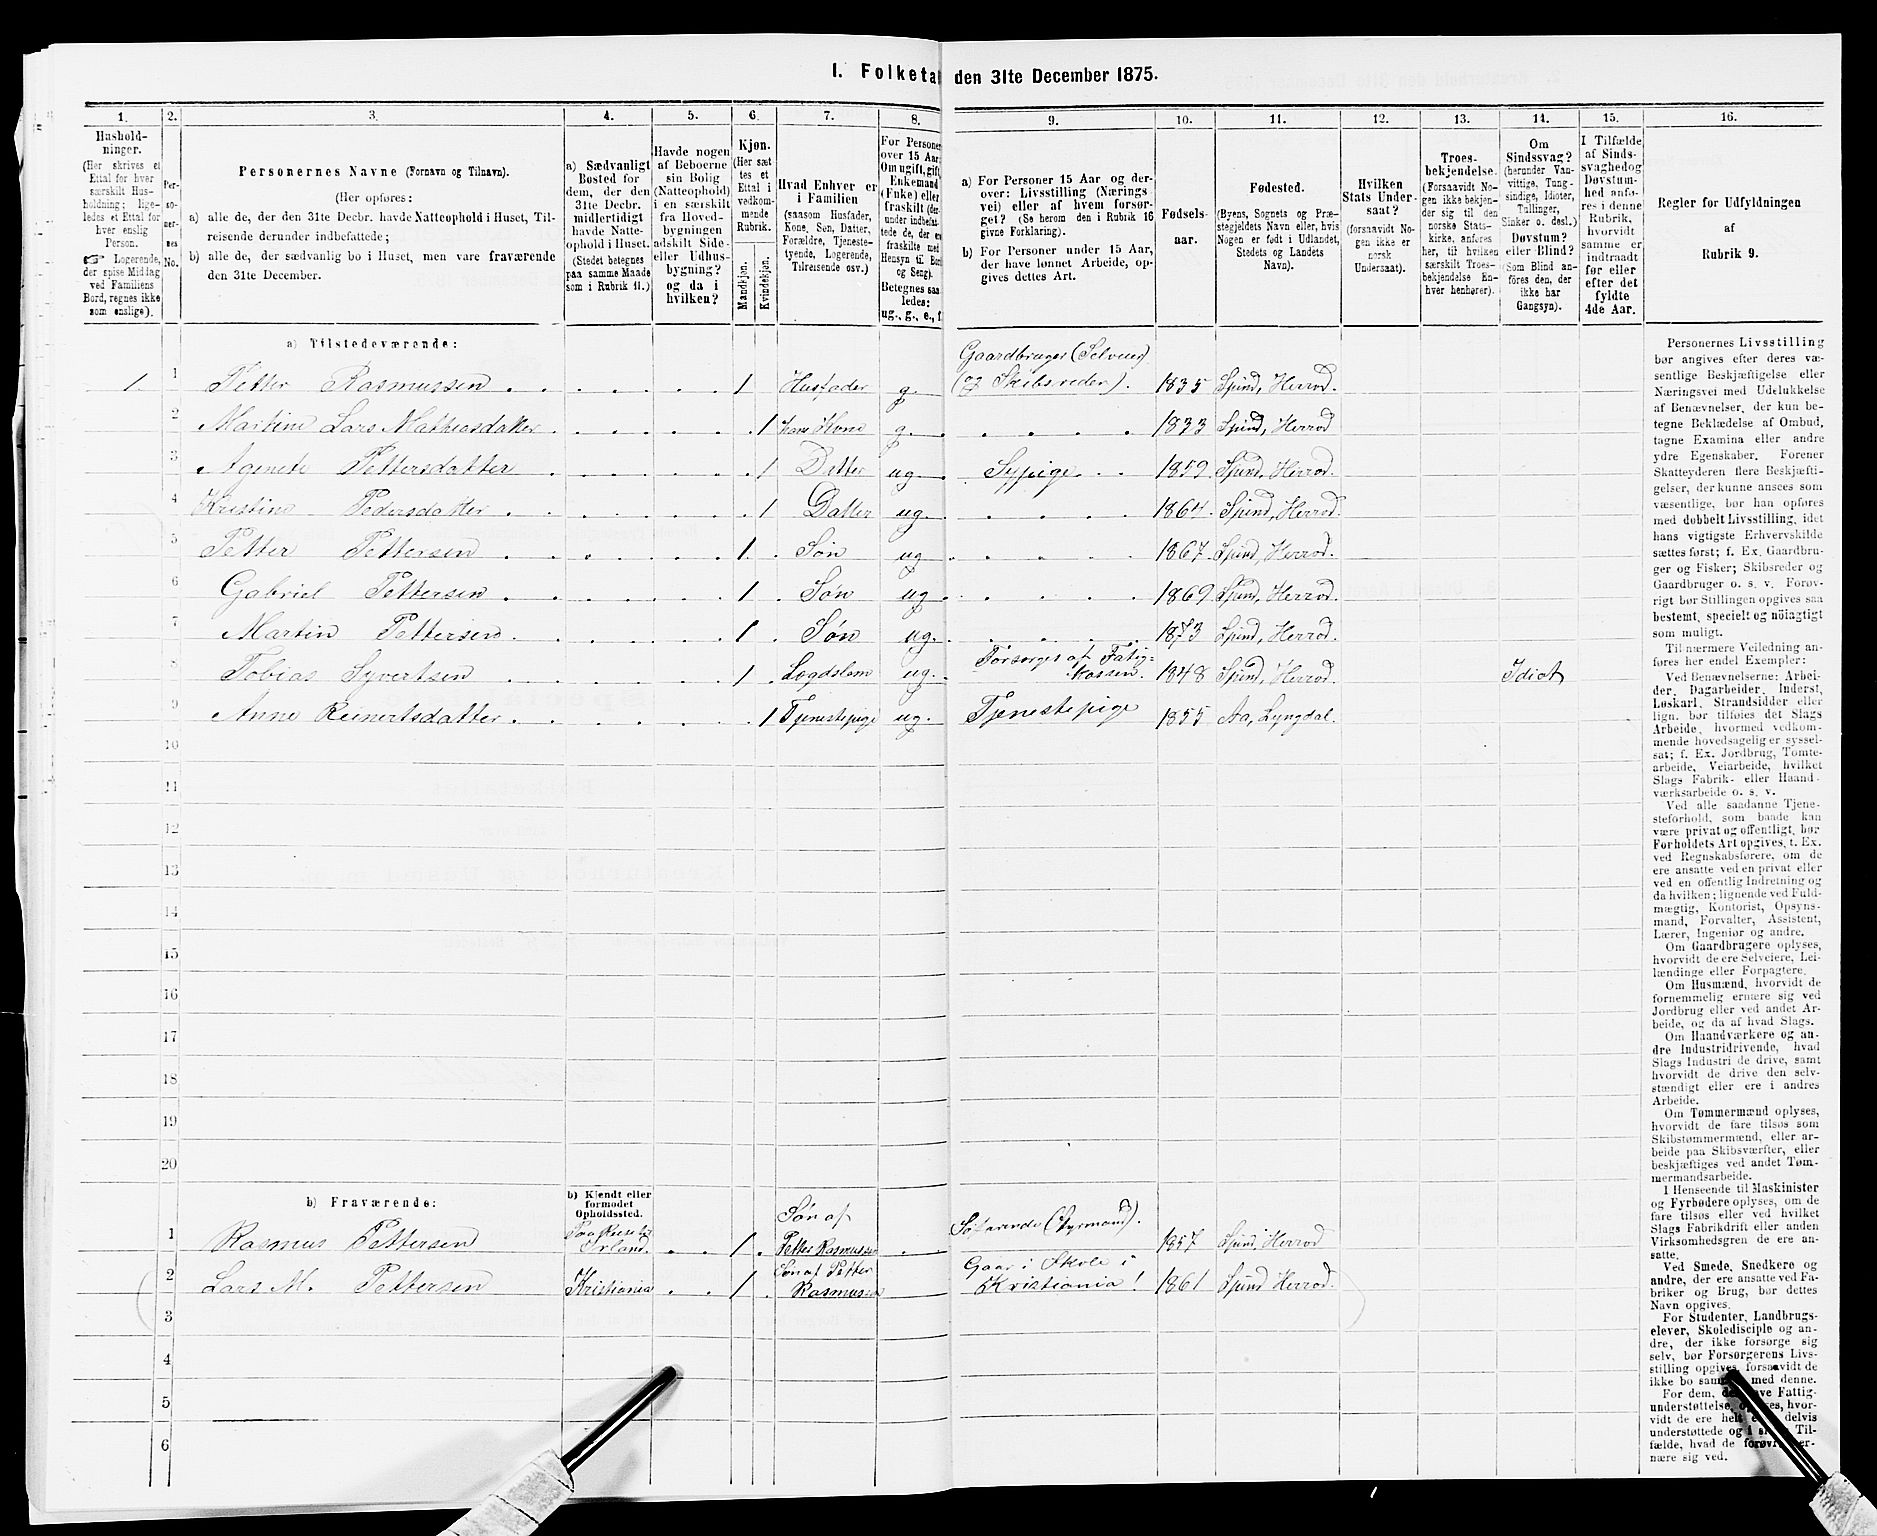 I. Folketal den 31te December 1875.
1. 2. 3. 4. 5. 6. 7. 8. 9. 10. 11. 12. 13. 14. 15. 16.
Hushold-
ninger.
(Her skrives et
Ettal for hver
særskilt Hus-
holdning; lige-
ledes et Ettal for
hver enslig
Person.
☞ Logerende,
der spise Middag
ved Familiens
Bord, regnes ikke
som enslige).
Per-
so-
ner-
nes
No.
Personernes Navne (Fornavn og Tilnavn).
(Her opføres:
a) alle de, der den 31te Decbr. havde Natteophold i Huset, Til-
reisende derunder indbefattede;
b) alle de, der sædvanlig bo i Huset, men vare fraværende
den 31te December.
a) Sædvanligt
Bosted for
dem, der den
31te Decbr.
midlertidigt
havde Natte-
ophold i Huset.
(Stedet betegnes
paa samme Maade
som i Rubrik 11.)
Havde nogen
af Beboerne
sin Bolig
(Natteophold)
i en særskilt
fra Hoved-
bygningen
adskilt Side-
eller Udhus-
bygning?
og da i
hvilken?
Kjøn.
(Her sæt-
tes et
Ettal i
vedkom-
mende
Rubrik.
Mandkjøn.
Kvindekjøn.
Hvad Enhver er
i Familien
(saasom Husfader,
Kone, Søn, Datter,
Forældre, Tjeneste-
tyende, Logerende,
Tilreisende osv.)
For Personer
over 15 Aar:
Om ugift, gift,
Enkemand
(Enke) eller
fraskilt (der-
under indbefat-
tede de, der ere
fraskilte med
Hensyn til Bord
og Seng).
Betegnes saa-
ledes:
ug., g., e., f.
a) For Personer 15 Aar og der-
over: Livsstilling (Nærings-
vei) eller af hvem forsør-
get? (Se herom den i Rubrik 16
givne Forklaring).
b) For Personer under 15 Aar,
der have lønnet Arbeide, op-
gives dettes Art.
Fødsels-
aar.
Fødested.
(Byens, Sognets og Præ-
stegjeldets Navn eller, hvis
Nogen er født i Udlandet,
Stedets og Landets
Navn).
Hvilken
Stats Under-
saat?
(forsaavidt No-
gen ikke er
norsk
Undersaat).
Troes-
bekjendelse.
(Forsaavidt No-
gen ikke bekjen-
der sig til den
norske Stats-
kirke, anføres
her, til hvilken
særskilt Troes-
bekjendelse En-
hver henhører).
Om
Sindssvag?
(herunder Van-
vittige, Tung-
sindige, Idioter,
Tullinger,
Sinker o. desl.)
Døvstum?
eller Blind?
(Som Blind an-
føres den, der
ikke har
Gangsyn).
I Tilfælde
af Sinds-
svaghed og
Døvstum-
hed anfø-
res i denne
Rubrik,
hvorvidt
samme er
indtraadt
før eller
efter det
fyldte
4de Aar.
Regler for Udfyldningen
af
Rubrik 9.
a) Tilstedeværende:
Gaardbruger (Selveier)
1 1 Petter Rasmussen 1 Husfader g. (og Skibsreder). 1835 Spind, Herrod.
2 Martine Lars Mathiasdatter 1 hans Kone g. 1833 Spind, Herrod
3 Agenete Pettersdatter 1 Datter ug. Sypige 1859 Spind, Herrod.
4 Kristine Pedersdatter 1 Datter ug. 1864 Spind, Herrod.
5 Petter Pettersen 1 Søn ug 1867 Spind, Herrod.
6 Gabriel Pettersen 1 Søn ug 1869 Spind, Herrod.
7 Martin Pettersen 1 Søn ug. 1873 Spind, Herrod.
Forsørges af Fatig-
8 Tobias Syvertsen 1 Legdslem ug. kassen. 1848 Spind, Herrod. Idiot
9 Anne Reinertsdatter 1 Tjenestepige ug. Tjenestepige 1855 Aa, Lyngdal.
10
11
12
13
14
15
16
17
18
19
20
b) Fraværende:
b) Kjendt eller
formodet
Opholdssted.
Paa Reise til Søn af Søfarende (Styrmand).
1 Rasmus Pettersen Irland. 1 Petter Rasmussen 1857 Spind, Herrod
Søn af Petter Gaar i Skole i
2 Lars M. Pettersen Kristiania 1 Rasmussen Kristiania! 1861 Spind Herrod.
3
4
5
6
Personernes Livsstilling
bør angives efter deres væ-
sentlige Beskjæftigelse eller
Næringsvei med Udelukkelse
af Benævnelser, der kun be-
tegne Beklædelse af Ombud,
tagne Examina eller andre
ydre Egenskaber. Forener
Skatteyderen flere Beskjæfti-
gelser, der kunne ansees som
væsentlige, bør han opføres
med dobbelt Livsstilling, idet
hans vigtigste Erhvervskilde
sættes først; f. Ex. Gaardbru-
ger og Fisker; Skibsreder og
Gaardbruger o. s. v. Forøv-
rigt bør Stillingen opgives saa
bestemt, specielt og nöiagtigt
som muligt.
Til nærmere Veiledning an-
føres her endel Exempler:
Ved Benævnelserne: Arbei-
der, Dagarbeider, Inderst,
Løskarl, Strandsidder eller
lign. bør tilføies det Slags
Arbeide, hvormed vedkom-
mende hovedsagelig er syssel-
sat; f. Ex. Jordbrug, Tomte-
arbeide, Veiarbeide, hvilket
Slags Fabrik- eller Haand-
værksarbeide o. s. v.
Ved alle saadanne Tjene-
steforhold, som baade kan
være privat og offentligt, bør
Forholdets Art opgives, f. Ex.
ved Regnskabsførere, om de
ere ansatte ved en privat eller
ved en offentlig Indretning og
da hvilken; lignende ved Fuld-
mægtig, Kontorist, Opsyns-
mand, Forvalter, Assistent,
Lærer, Ingeniør og andre.
Om Gaardbrugere oplyses,
hvorvidt de ere Selveiere, Lei-
lændinge eller Forpagtere.
Om Husmænd, hvorvidt de
fornemmelig ernære sig ved
Jordbrug eller ved andet Ar-
beide, og da af hvad Slags.
Om Haandværkere og an-
dre Industridrivende, hvad
Slags Industri de drive, samt
hvorvidt de drive den selv-
stændigt eller ere i andres
Arbeide.
Om Tømmermænd oplyses,
hvorvidt de fare tilsøs som
Skibstømmermænd, eller ar-
beide paa Skibsværfter, eller
beskjæftiges ved andet Tøm-
mermandsarbeide.
I Henseende til Maskinister
og Fyrbødere oplyses, om de
fare tilsøs eller ved hvilket
Slags Fabrikdrift eller anden
Virksomhedsgren de ere an-
satte.
Ved Smede, Snedkere og
andre, der ere ansatte ved Fa-
briker og Brug, bør dettes
Navn opgives.
For Studenter, Landbrugs-
elever, Skoledisciple og an-
dre, der ikke forsørge sig
selv, bør Forsørgerens Livs-
stilling opgives, forsaavidt de
ikke bo sammen med denne.
For dem, der have Fattig-
understøttelse, oplyses, hvor-
vidt de ere helt eller delvis
understøttede og i sidste Til-
fælde, hvad de forøvrigt er-
nære sig ved.